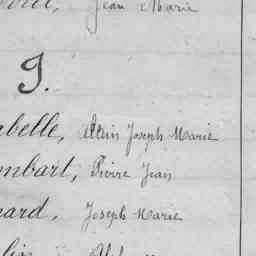 Jean Marie
J.
abelle, Alain Joseph Marie
mbart, Pierre Jean
ard, Joseph Marie